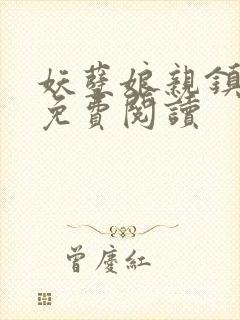 妖孽娘親鎮
免費閱讀
曾慶紅